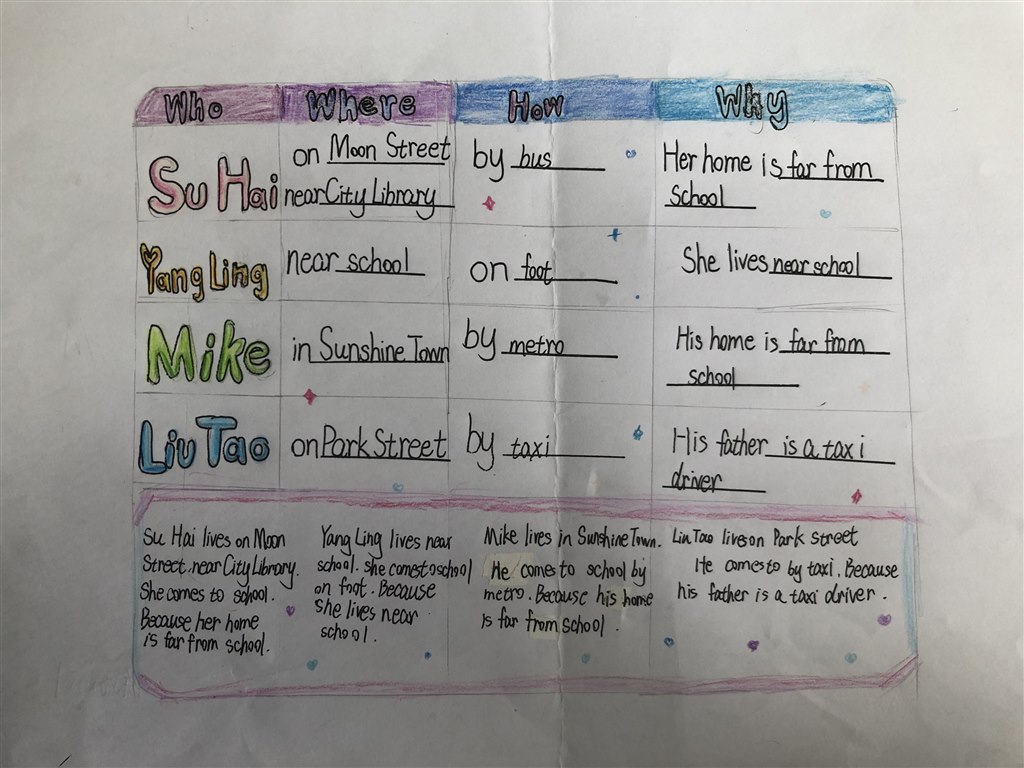 Who Where How Why
Su Hai
on Moon Street
near City Library
by bus
Her home is far from
school
Yang Ling
near school
on foot
She lives near school
Mike
in Sunshine Town
by metro
His home is far from
school
Liu Tao
on Park Street
by taxi
His father is a taxi
driver
Su Hai lives on Moon
Street. near City Library.
She comes to school.
Because her home
is far from school.
Yang Ling lives near
school. she comes to school
on foot. Because
she lives near
school.
Mike lives in Sunshine Town.
He comes to school by
metro. Because his home
is far from school.
Liu Tao lives on Park Street
He comes to by taxi. Because
his father is a taxi driver.